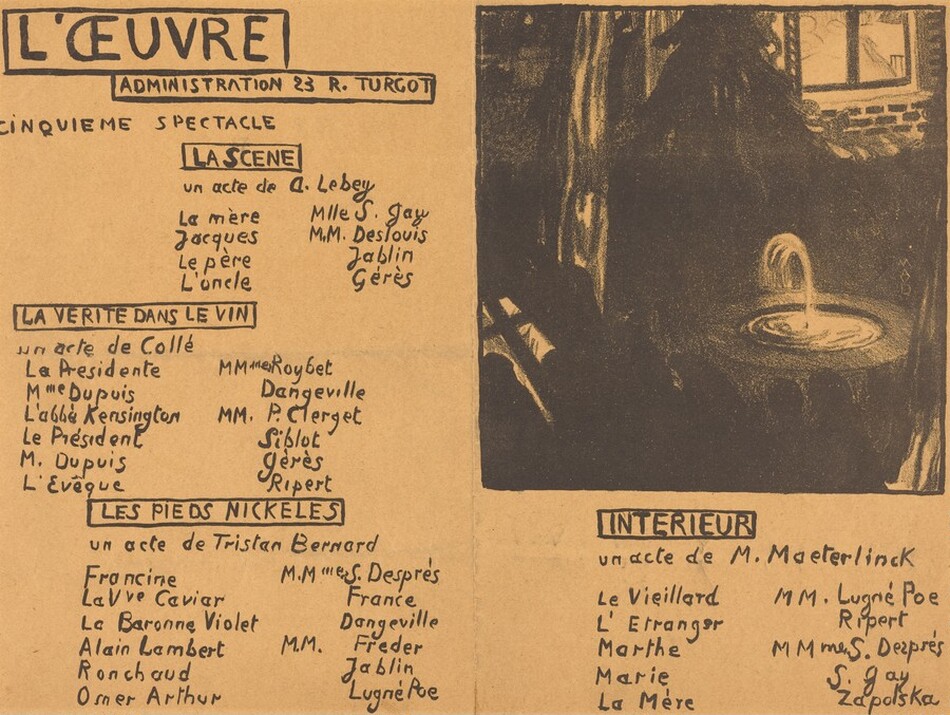 L'ŒUVRE
ADMINISTRATION 23 R. TURGOT
CINQUIEME SPECTACLE
LA SCENE
un acte de A. Lebey
La mère Mlle S. Gay
Jacques M.M. Deslouis
Le père Jablin
L'oncle Gérès
LA VERITE DANS LE VIN
un acte de Collé
La Présidente MMmes Roybet
Mme Dupuis Dangeville
L'abbé Kensington MM. P. Clerget
Le Président Siblot
M. Dupuis Gérès
L'Evêque Ripert
LES PIEDS NICKELES
un acte de Tristan Bernard
Francine M.Mmes S. Després
La Vve Caviar France
La Baronne Violet Dangeville
Alain Lambert M.M. Freder
Ronchaud Jablin
Omer Arthur Lugné Poe
INTERIEUR
un acte de M. Maeterlinck
Le Vieillard MM. Lugné Poe
L'Etranger Ripert
Marthe MMmes S. Després
Marie S. Gay
La Mère Zapolska